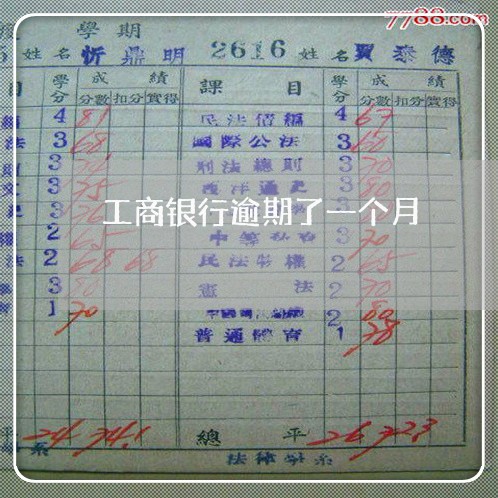 7788.com
學期
姓名 忻鼎明 2616 姓名 賈泰德
目 學分 成績 課目 學分 成績
分數 扣分 實得 分數 扣分 實得
4 81 民法債編 4 67
法 3 68 國際公法 3 60
3 刑法總則 3 70
3 75 西洋通史 3 80
工商银行逾期了一个月
2 65 3 70
法 2 68 68 民法物權 2 65
3 80 憲法 2 70
1 70 2 80
普通體育 1 78
平 24 74.1 總平 26 72.3
系 法律學系